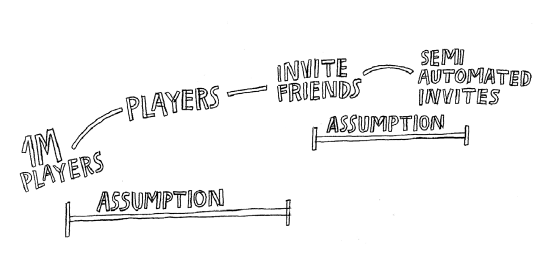 1M
PLAYERS
PLAYERS
INVITE
FRIENDS
SEMI
AUTOMATED
INVITES
ASSUMPTION
ASSUMPTION